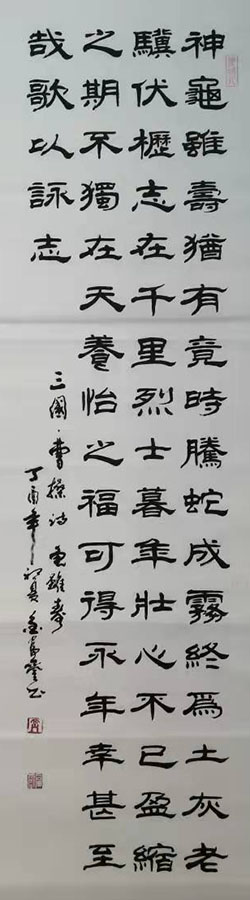 神龜雖壽猶有竟時騰蛇成霧終爲土灰老
驥伏櫪志在千里烈士暮年壯心不已盈縮
之期不獨在天養怡之福可得永年幸甚至
哉歌以詠志
三國·曹操詩 龜雖壽
丁酉年初夏